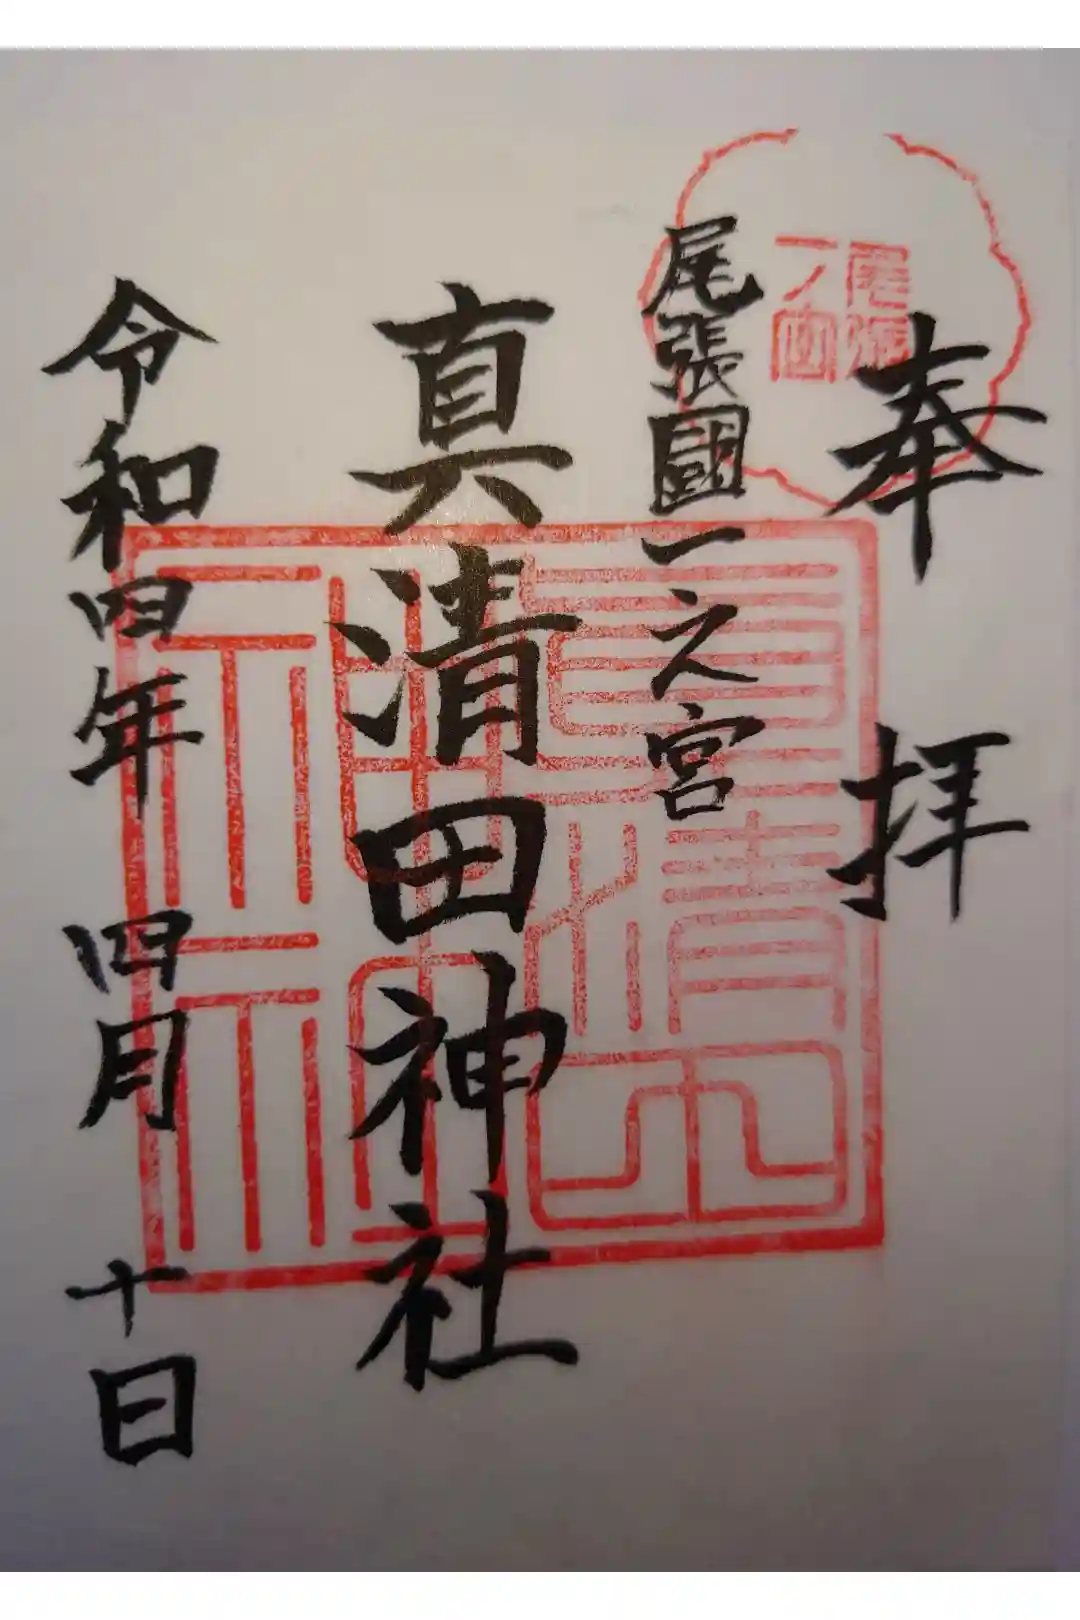 奉拝
尾張國一之宮
真清田神社
令和四年四月十日
尾張
一ノ宮
真清田
神社